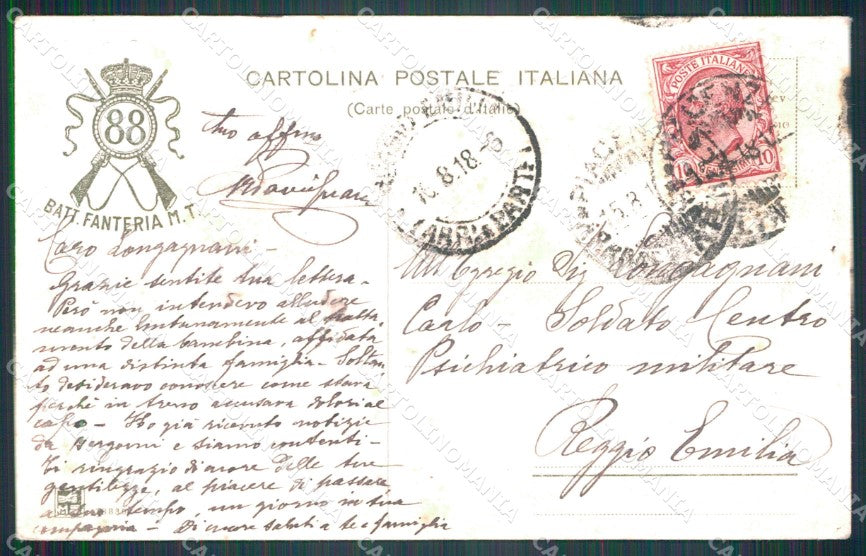 CARTOLINA POSTALE ITALIANA
(Carte postale d'Italie)
88
BATT. FANTERIA M.T.
POSTE ITALIANE
10 10
16.8.18
ARRIVI E PARTENZE
tuo affmo
Caro Longagnani -
Grazie sentite tua lettera -
Però non intendevo alludere
neanche lontanamente al tratta
mento della bambina, affidata
ad una distinta famiglia - Soltan
to desideravo conoscere come stava
perchè in treno accusava dolori al
capo - Ho già ricevuto notizie
da Bergonni e siamo contenti -
Ti ringrazio di cuore delle tue
gentilezze, al piacere di passare
a suo tempo, un giorno in tua
compagnia - Di cuore saluti a te e famiglia
All' Egregio Sig Longagnani
Carlo - Soldato Centro
Psichiatrico militare
Reggio Emilia
CARTOLINOMANIA